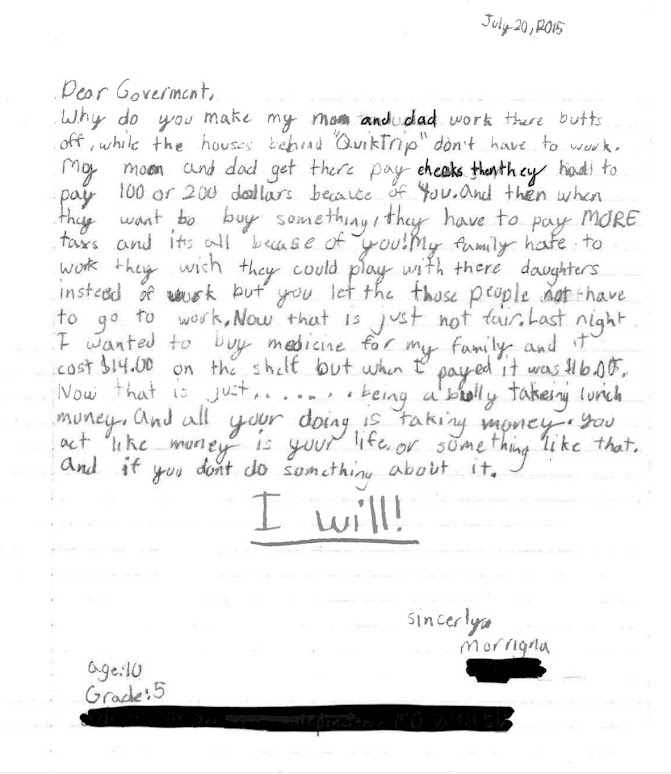 July 20, 2015
Dear Goverment,
Why do you make my mom and dad work there butts
off, while the houses behind "QuikTrip" don't have to work.
My mom and dad get there pay cheeks then they had to
pay 100 or 200 dollars because of you. And then when
they want to buy something, they have to pay MORE
taxs and its all becase of you! My family hate to
work they wish they could play with there daughters
instead of work but you let the those people not have
to go to work. Now that is just not fair. Last night
I wanted to buy medicine for my family and it
cost $14.00 on the shelf but when I payed it was $16.05.
Now that is just....... being a bully takeing lunch
money. And all your doing is taking money. You
act like money is your life, or something like that.
And if you dont do something about it.
I will!
sincerly,
Morrigna
age:10
Grade:5